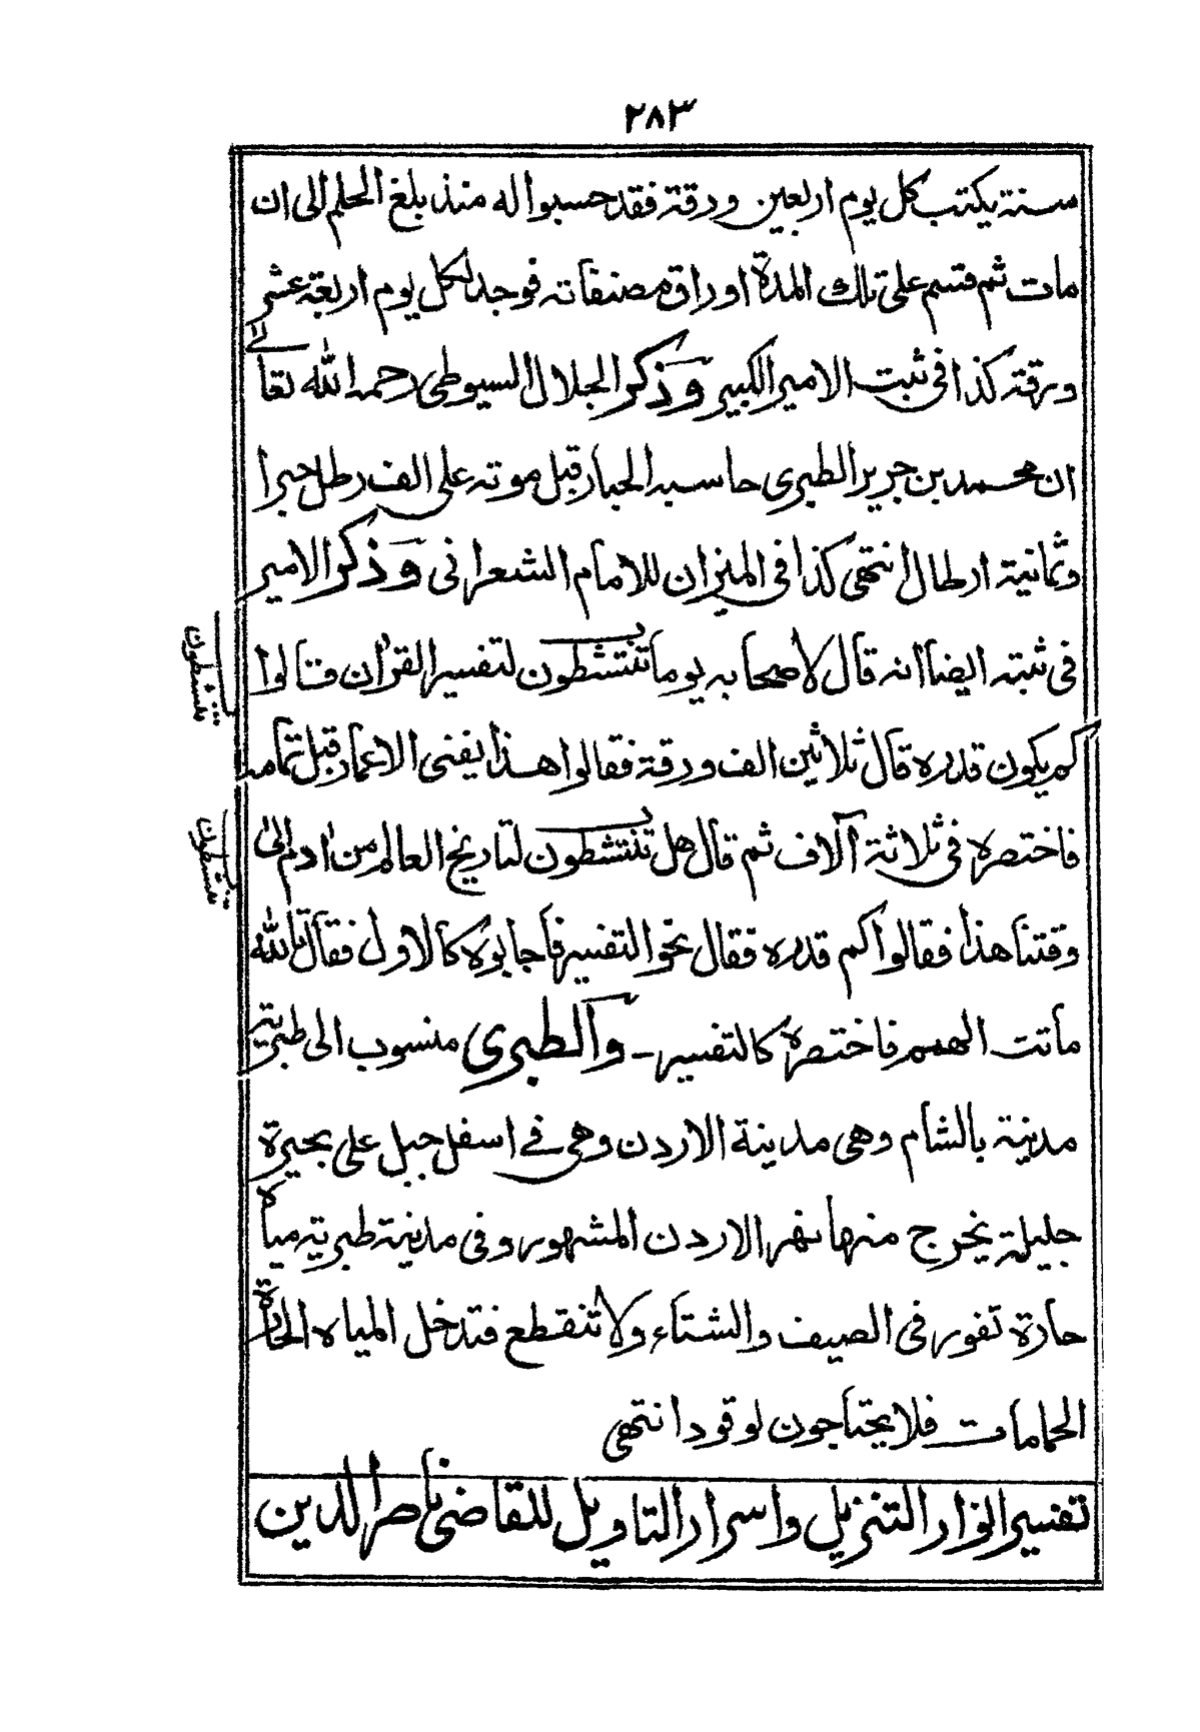 ٢٨٣
سنة يكتب كل يوم اربعين ورقة فقد حسبوا له منذ بلغ الحلم الى ان
مات ثم قسم على تلك المدة اوراق مصنفاته فوجد لكل يوم اربعة عشر
ورقة كذا فى ثبت الامير الكبير وذكر الجلال السيوطى رحمه الله تعالى
ان محمد بن جرير الطبرى حاسبه الحبار قبل موته على الف رطل حبرا
وثمانية ارطال انتهى كذا فى الميزان للامام الشعرانى وذكر الامير
فى ثبته ايضا انه قال لاصحابه يوما تنتشطون لتفسير القرأن قالوا
كم يكون قدره قال ثلاثين الف ورقة فقالوا هذا يفنى الاعمار قبل تمامه
فاختصره فى ثلاثة آلاف ثم قال هل تنتشطون لتاريخ العالم من ادم الى
وقتنا هذا فقالوا كم قدره فقال نحو التفسير فاجابوه كالاول فقال انا لله
ماتت الهمم فاختصره كالتفسير - والطبرى منسوب الى طبرية
مدينة بالشام وهى مدينة الاردن وهى فى اسفل جبل على بحيرة
جليلة يخرج منها نهر الاردن المشهور وفى مدينة طبرية مياه
حارة تفور فى الصيف والشتاء ولا تنقطع فتدخل المياه الحارة
الحمامات فلا يحتاجون لوقود انتهى
تفسير انوار التنزيل واسرار التاويل للقاضى ناصر الدين
تنشطون
تنشطون